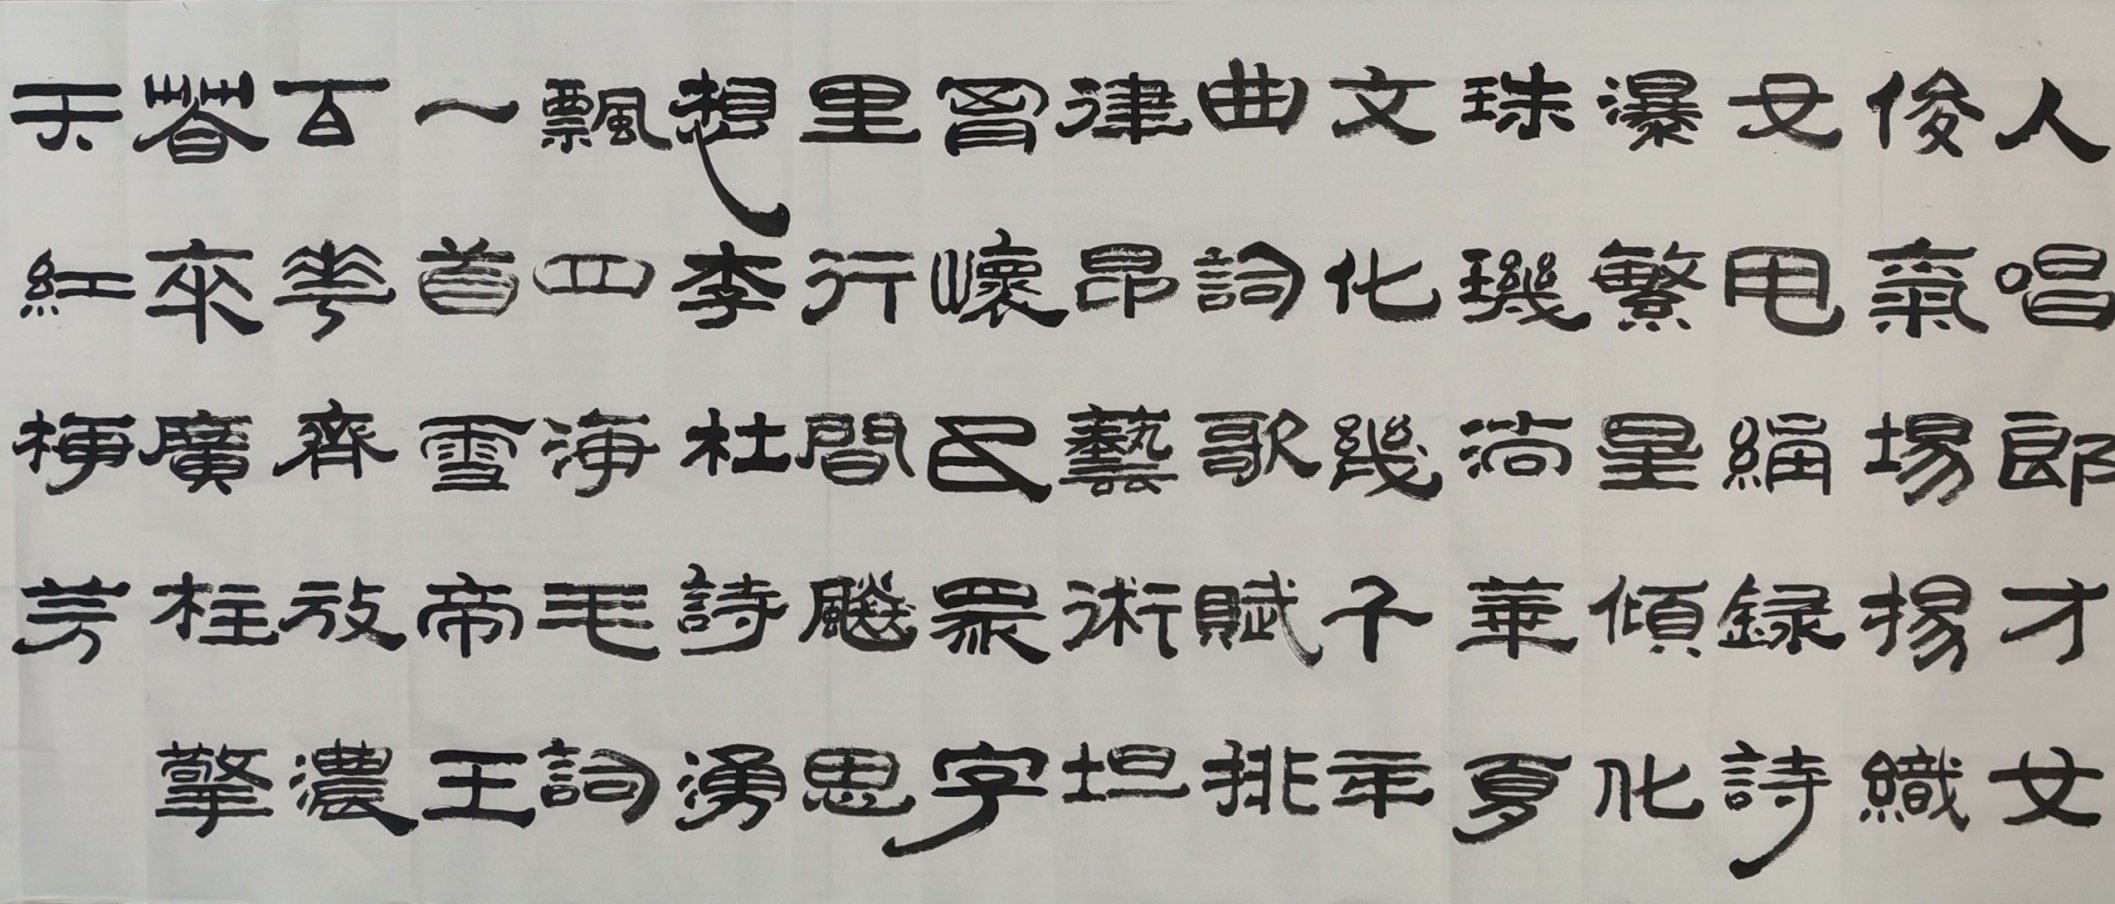 人唱郎才女
俊氣場揚織
女电編録詩
瀑繁星傾化
珠璣淌華夏
文化幾千年
曲詞歌賦排
律昂藝術坦
胷懷民眾字
里行間飈思
想李杜詩湧
飄四海毛詞
一首雪帝王
百花齊放濃
春來廣柱擎
天紅梅芳